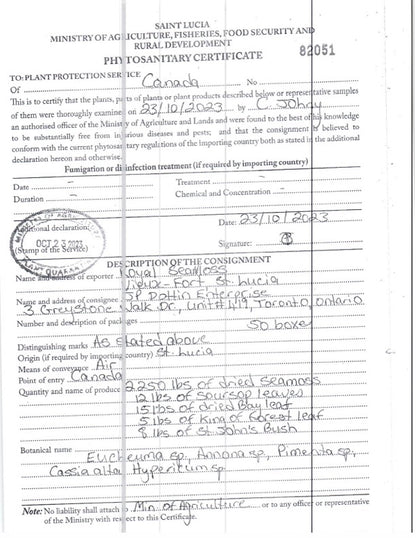 SAINT LUCIA
MINISTRY OF AGRICULTURE, FISHERIES, FOOD SECURITY AND
RURAL DEVELOPMENT
PHYTOSANITARY CERTIFICATE
82051
TO: PLANT PROTECTION SERVICE
Of Canada No
This is to certify that the plants, parts of plants or plant products described below or representative samples
of them were thoroughly examined on 23/10/2023 by C. Johny
an authorised officer of the Ministry of Agriculture and Lands and were found to the best of his knowledge
to be substantially free from injurious diseases and pests; and that the consignment is believed to
conform with the current phytosanitary regulations of the importing country both as stated in the additional
declaration hereon and otherwise.
Fumigation or disinfection treatment (if required by importing country)
Date – Treatment –
Duration – Chemical and Concentration –
Additional declaration: Date: 23/10/2023
OCT 23 2023
(Stamp of the Service) Signature:
PLANT QUARAN
DESCRIPTION OF THE CONSIGNMENT
Name and address of exporter Royal Seamoss
Vieux-Fort St. Lucia
Name and address of consignee JP Dottin Enterprise
3 Greystone Walk Dr, Unit# 419, Toronto, Ontario
Number and description of packages
50 boxes
Distinguishing marks As stated above
Origin (if required by importing country) St. Lucia
Means of conveyance Air
Point of entry Canada
Quantity and name of produce 2,250 lbs of dried seamoss
12 lbs of soursop leaves
15 lbs of dried Bay leaf
5 lbs of King of Forest leaf
8 lbs of St. John's Bush
Botanical name
Eucheuma sp, Annona sp, Pimenta sp,
Cassia alta, Hypericum sp
Note: No liability shall attach to Min. of Agriculture or to any officer or representative
of the Ministry with respect to this Certificate.